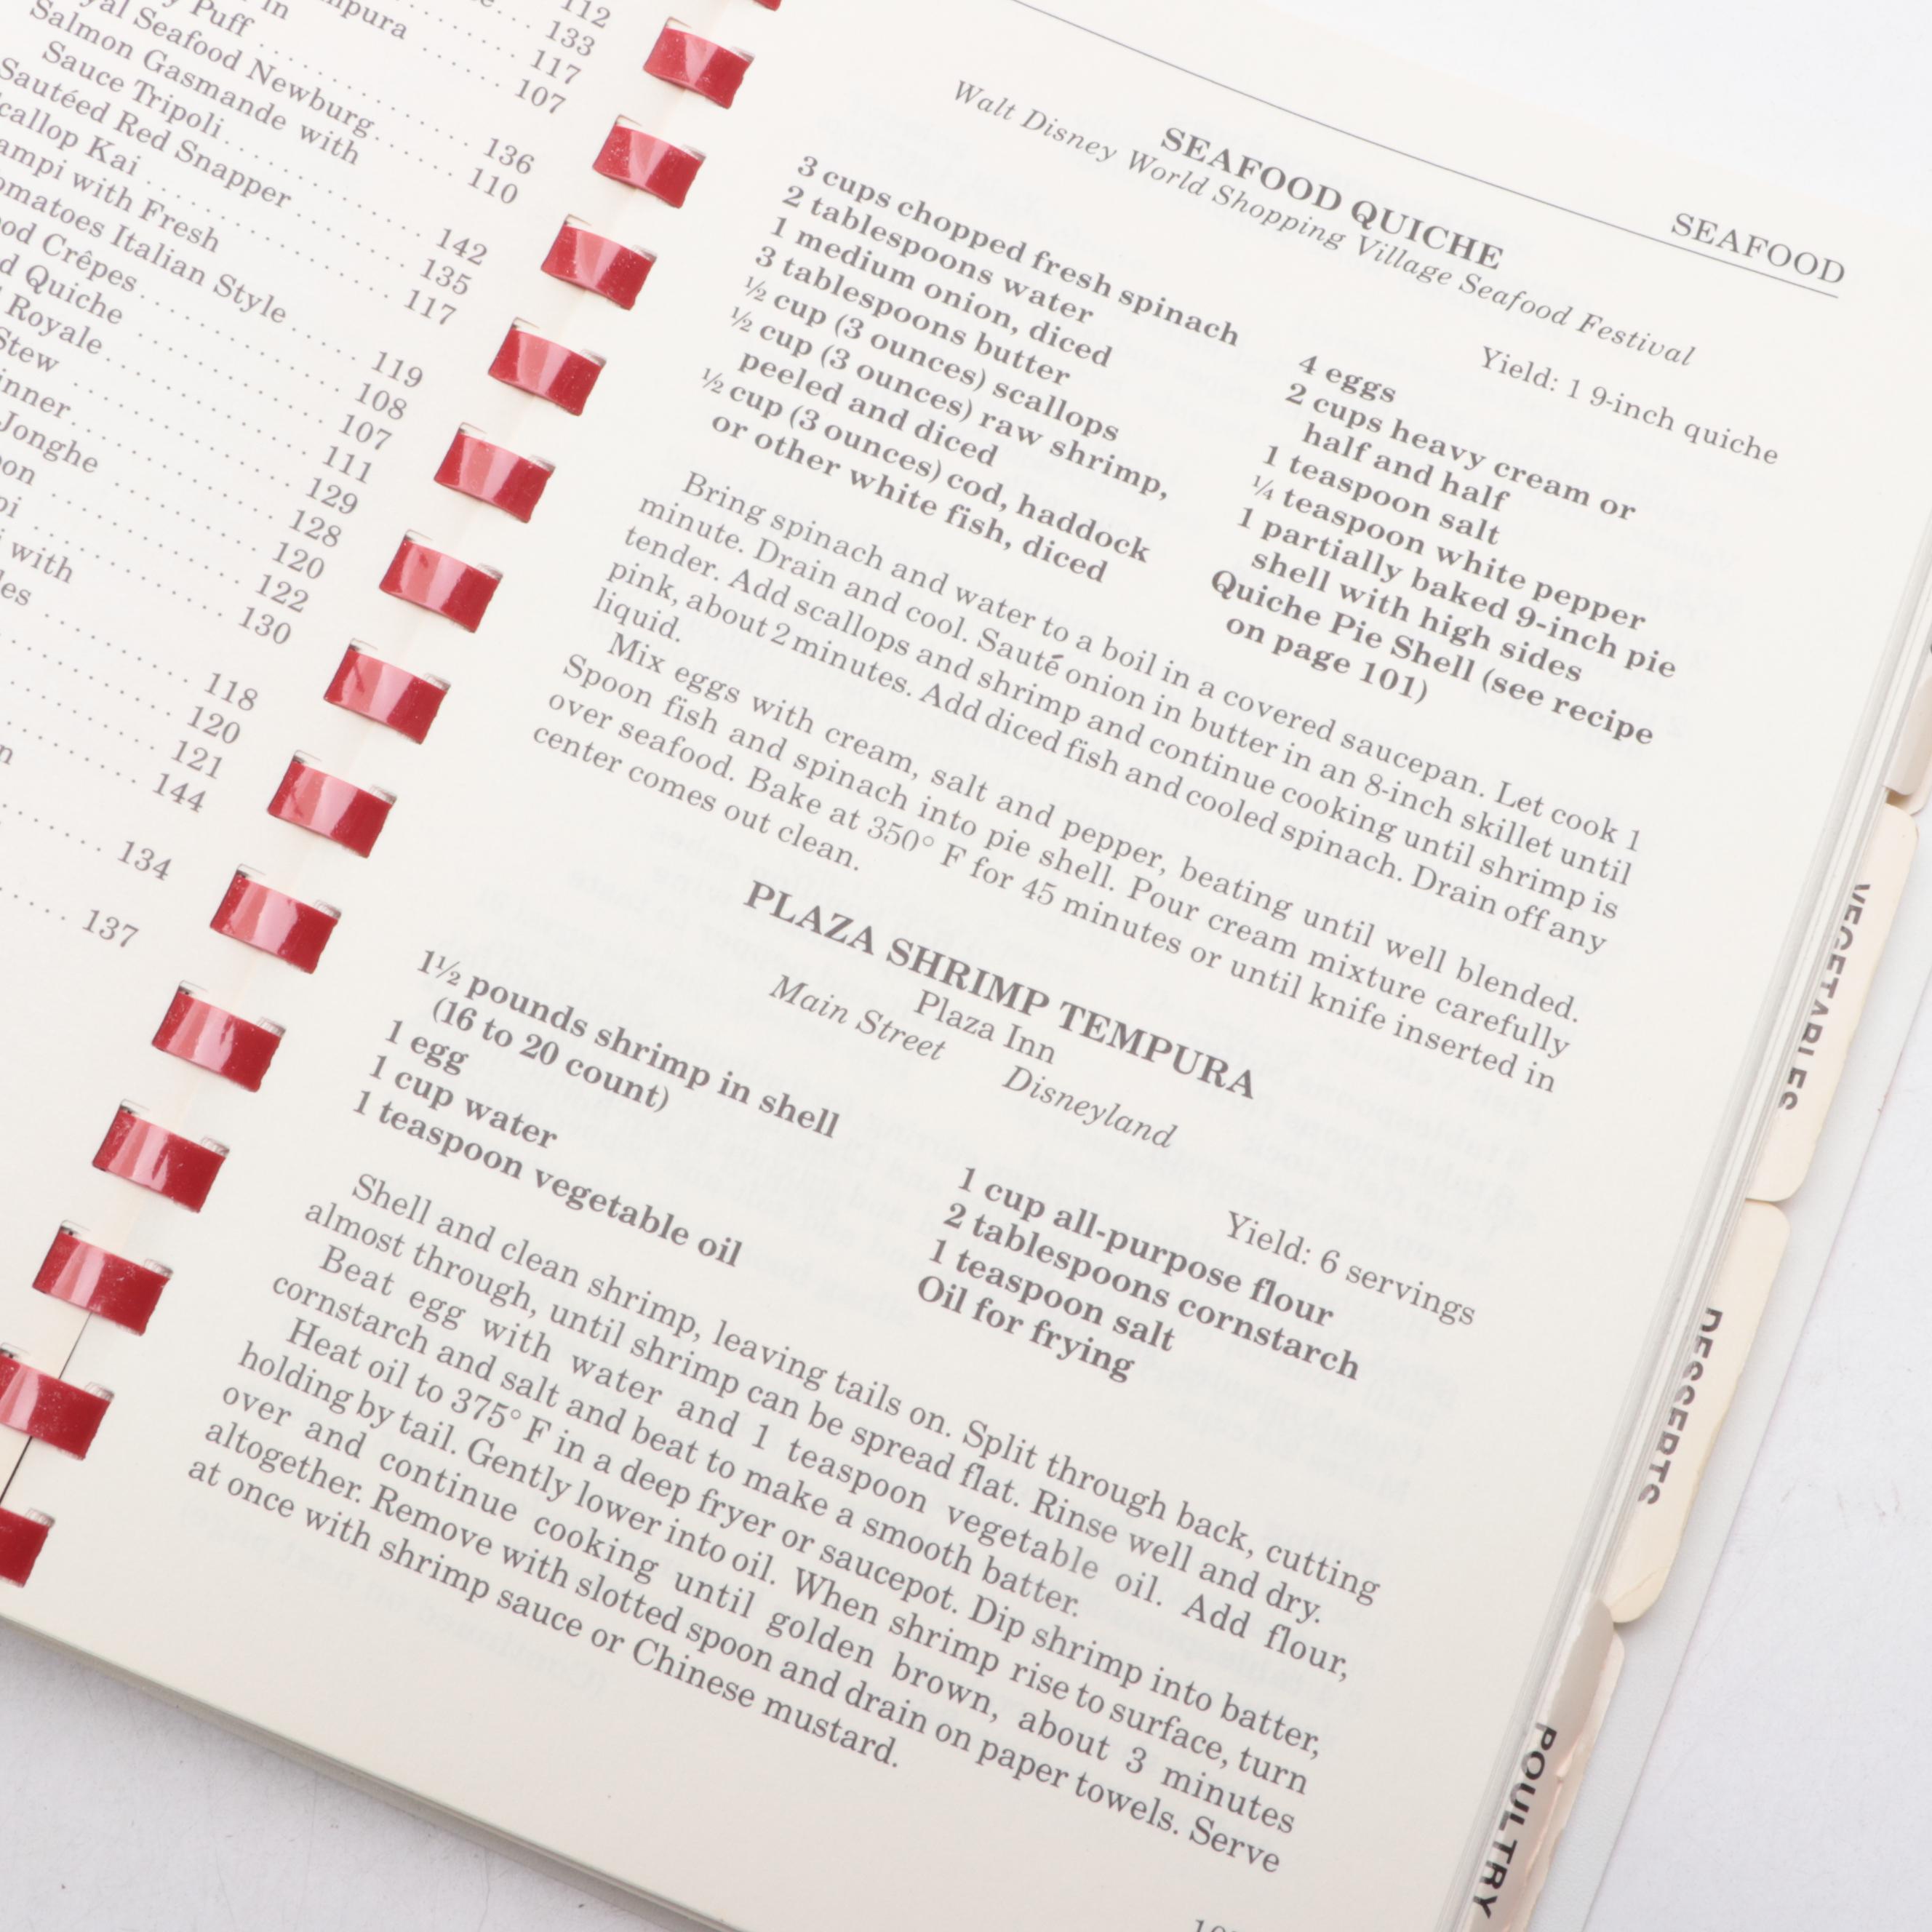 112
133
mpura . . . . . . . . . . 117
Puff . . . . . . . . . . 107
Seafood Newburg . . . . . . 136
Salmon Gasmande with
Sauce Tripoli . . . . . . . . . . 110
Sautéed Red Snapper . . . . . . . . 142
Kai . . . . . . . . . . 135
with Fresh
Italian Style . . . . . . 117
Crêpes . . . . . . . . . . 119
Quiche . . . . . . . . . . 108
Royale . . . . . . . . . . 107
111
129
Jonghe . . . . . . . . . . 128
120
122
with 130
118
120
121
144
134
137
SEAFOOD
SEAFOOD QUICHE
Walt Disney World Shopping Village Seafood Festival
Yield: 1 9-inch quiche
3 cups chopped fresh spinach
2 tablespoons water
1 medium onion, diced
3 tablespoons butter
½ cup (3 ounces) scallops
½ cup (3 ounces) raw shrimp,
peeled and diced
½ cup (3 ounces) cod, haddock
or other white fish, diced
4 eggs
2 cups heavy cream or
half and half
1 teaspoon salt
¼ teaspoon white pepper
1 partially baked 9-inch pie
shell with high sides
Quiche Pie Shell (see recipe
on page 101)
Bring spinach and water to a boil in a covered saucepan. Let cook 1
minute. Drain and cool. Sauté onion in butter in an 8-inch skillet until
tender. Add scallops and shrimp and continue cooking until shrimp is
pink, about 2 minutes. Add diced fish and cooled spinach. Drain off any
liquid.
Mix eggs with cream, salt and pepper, beating until well blended.
Spoon fish and spinach into pie shell. Pour cream mixture carefully
over seafood. Bake at 350° F for 45 minutes or until knife inserted in
center comes out clean.
PLAZA SHRIMP TEMPURA
Plaza Inn
Main Street Disneyland
Yield: 6 servings
1½ pounds shrimp in shell
(16 to 20 count)
1 egg
1 cup water
1 teaspoon vegetable oil
1 cup all-purpose flour
2 tablespoons cornstarch
1 teaspoon salt
Oil for frying
Shell and clean shrimp, leaving tails on. Split through back, cutting
almost through, until shrimp can be spread flat. Rinse well and dry.
Beat egg with water and 1 teaspoon vegetable oil. Add flour,
cornstarch and salt and beat to make a smooth batter.
Heat oil to 375° F in a deep fryer or saucepot. Dip shrimp into batter,
holding by tail. Gently lower into oil. When shrimp rise to surface, turn
over and continue cooking until golden brown, about 3 minutes
altogether. Remove with slotted spoon and drain on paper towels. Serve
at once with shrimp sauce or Chinese mustard.
VEGETABLES
DESSERTS
POULTRY